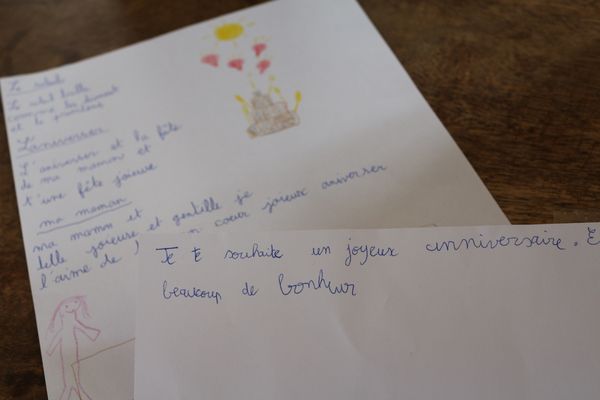 Le soleil
Le soleil brille
comme le diamant
et la première
L'aniverser
L'aniverser et la fête
de ma maman et
t'une fête joieuse
ma maman
ma mamn et
belle joieuse et gentille je
l'aime de coeur joieux aniverser
Je te souhaite un joyeux anniversaire. E
beaucoup de bonheur